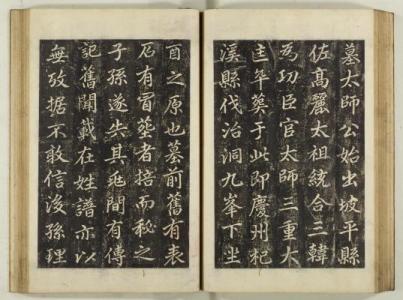 墓太師公始出坡平縣
佐高麗太祖統合三韓
為功臣官太師三重大
匡卒葬于此即慶州杞
溪縣伐治洞九峯下坐
酉之原也墓前舊有表
石有冒葬者掊而秘之
子孫遂失其兆間有傳
記舊聞載在姓譜亦以
無攷据不敢信後孫理